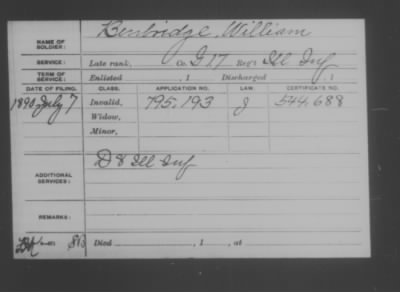 NAME OF SOLDIER: Benbridge, William
SERVICE: Late rank, Co. G 17 Reg't Ill Inf
TERM OF SERVICE: Enlisted , 1 Discharged , 1
DATE OF FILING. CLASS. APPLICATION NO. LAW. CERTIFICATE NO.
1890 July 7 Invalid, 795,193 J 544,688
Widow,
Minor,
ADDITIONAL SERVICES: D 8 Ill Inf
REMARKS:
Died , 1 , at